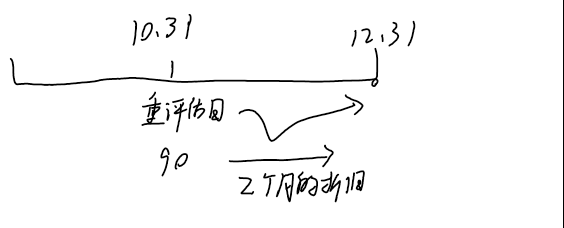 10.31 12.31
重评估日
90
2个月的折旧